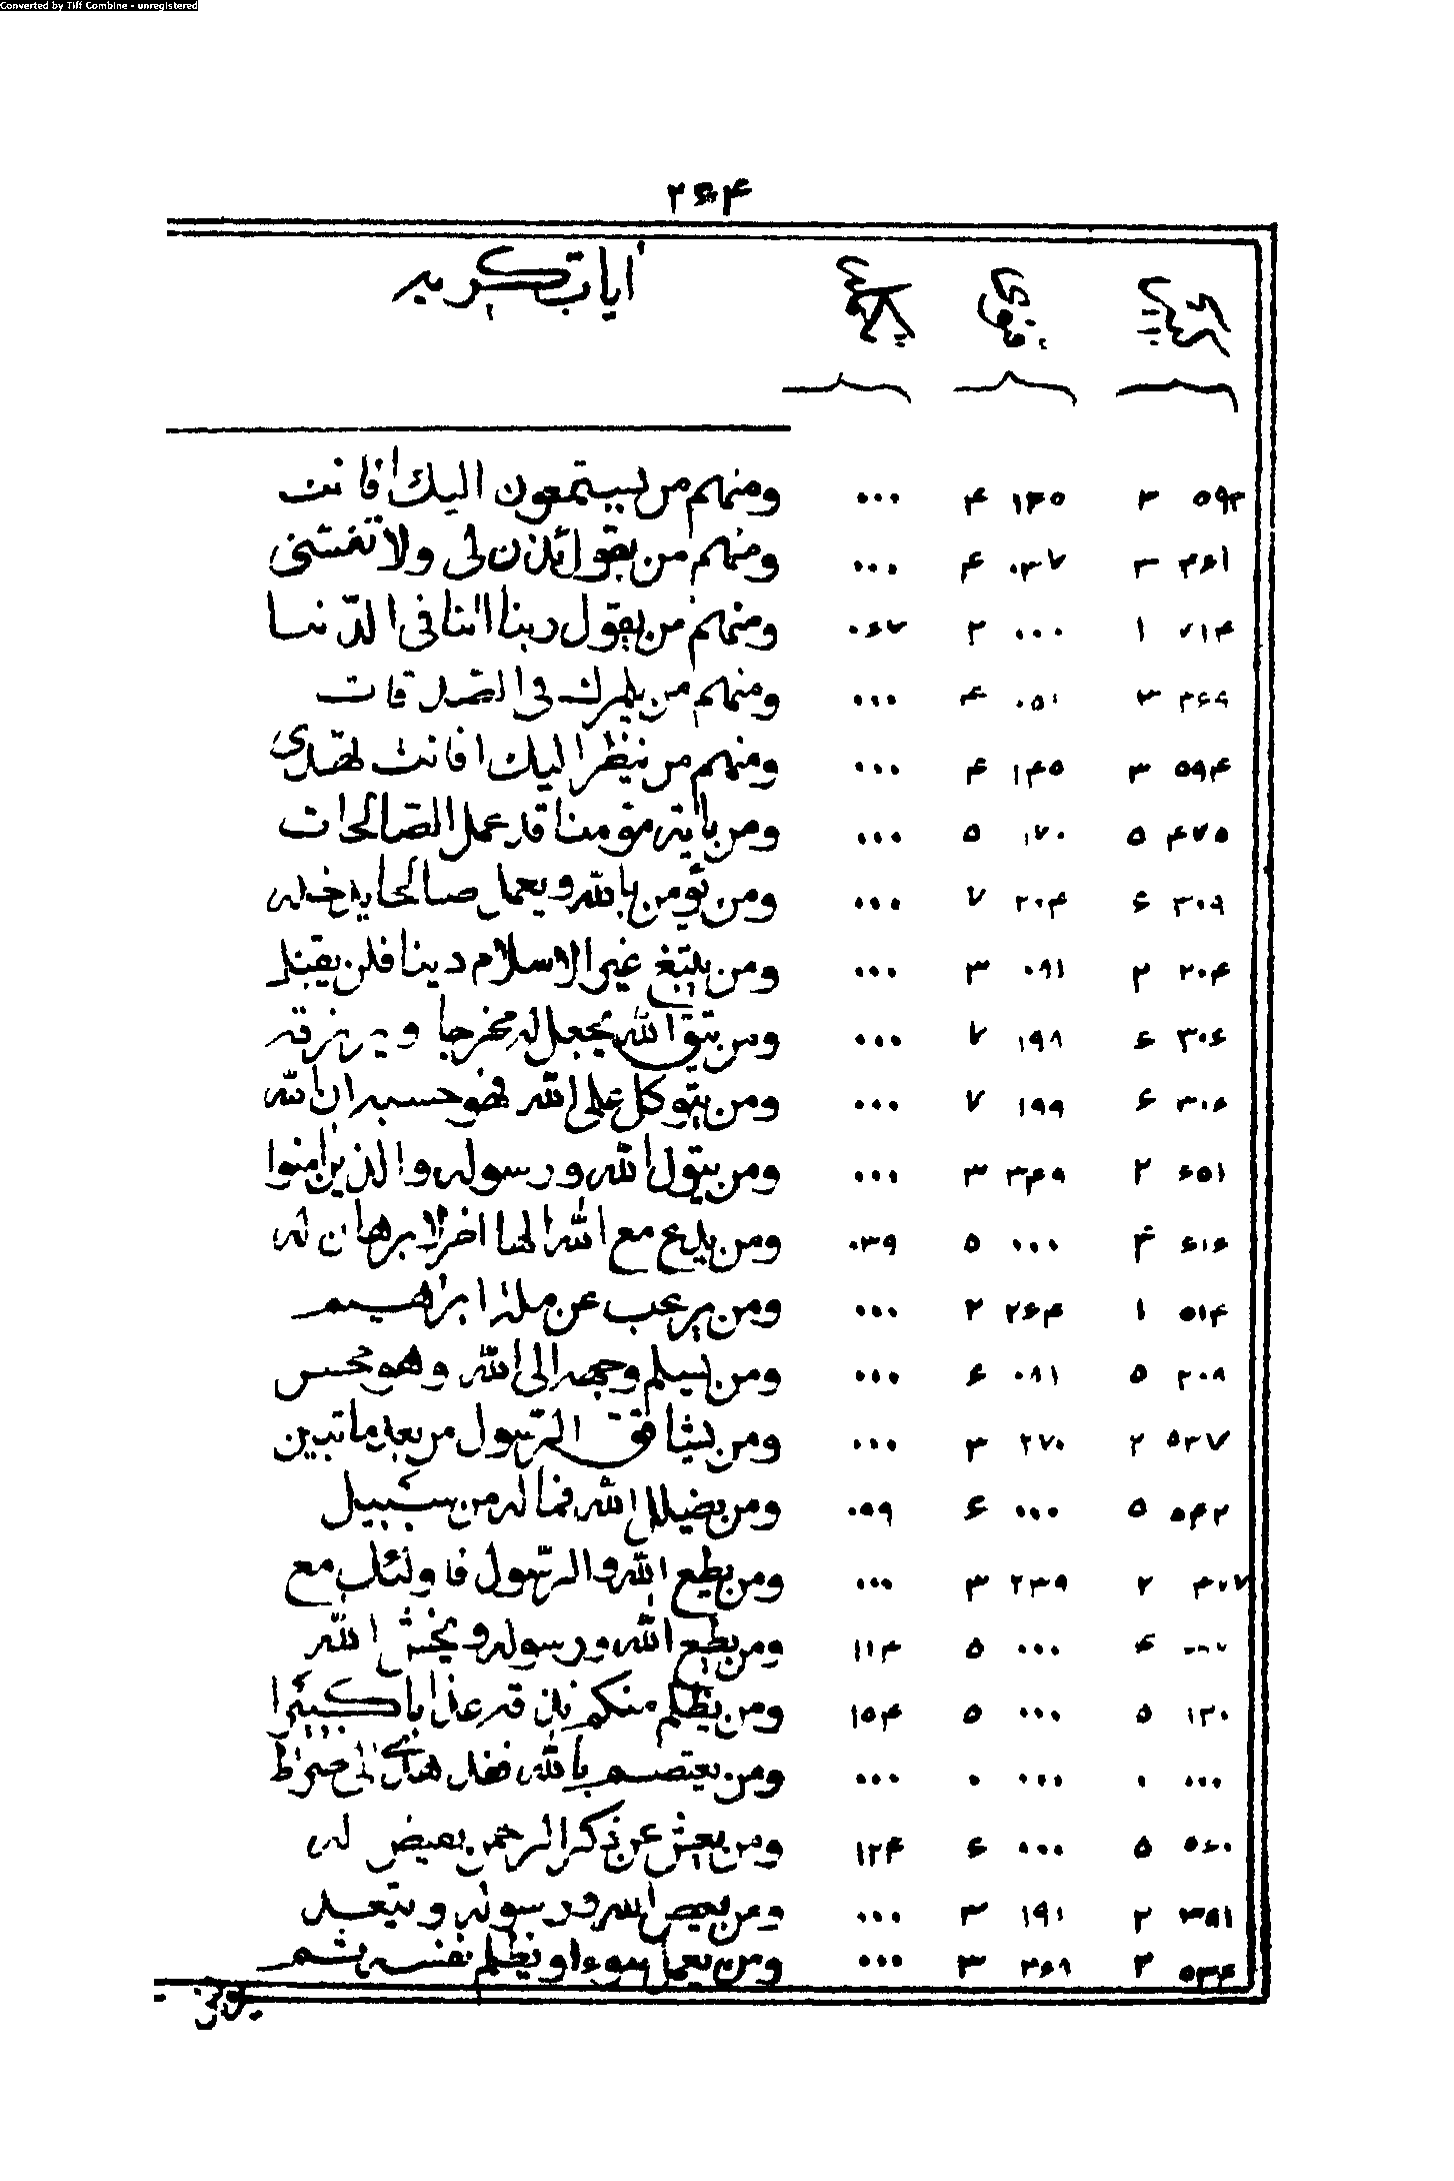 Converted by Tiff Combine - unregistered
۲۶۴
ایات کریمه
۵۹۳ ۳ ۱۳۵ ۴ ۰۰۰ ومنهم من یستمعون الیك افانت
۳۶۱ ۳ ۰۳۷ ۴ ۰۰۰ ومنهم من یقول ئذن لی ولا تفتنی
۷۱۴ ۱ ۰۰۰ ۲ ۰۶۷ ومنهم من یقول ربنا اتنا فی الدّنیا
۳۶۹ ۳ ۰۵۱ ۴ ۰۰۰ ومنهم من یلمزك فی الصّدقات
۵۹۴ ۳ ۱۴۵ ۴ ۰۰۰ ومنهم من ینظر الیك افانت تهدی
۴۷۵ ۵ ۱۷۰ ۵ ۰۰۰ ومن یاته مؤمنا قد عمل الصّالحات
۳۰۹ ۶ ۲۰۴ ۷ ۰۰۰ ومن یؤمن بالله ویعمل صالحا یدخله
۲۰۴ ۲ ۰۹۱ ۳ ۰۰۰ ومن یبتغ غیر الاسلام دینا فلن یقبل
۳۰۶ ۶ ۱۹۸ ۷ ۰۰۰ ومن یتق الله یجعل له مخرجا ویرزقه
۳۰۶ ۶ ۱۹۹ ۷ ۰۰۰ ومن یتوکل علی الله فهو حسبه ان الله
۶۵۱ ۲ ۳۴۹ ۳ ۰۰۰ ومن یتول الله ورسوله والذین امنوا
۶۱۶ ۴ ۰۰۰ ۵ ۰۳۹ ومن یدع مع الله الها اخر لا برهان له
۵۱۴ ۱ ۲۶۴ ۲ ۰۰۰ ومن یرغب عن ملة ابراهیم
۲۰۸ ۵ ۰۸۱ ۶ ۰۰۰ ومن یسلم وجهه الی الله وهو محسن
۵۳۷ ۲ ۲۷۰ ۳ ۰۰۰ ومن یشاقق الرّسول من بعد ما تبین
۵۴۲ ۵ ۰۰۰ ۶ ۰۹۹ ومن یضلل الله فما له من سبیل
۴۰۷ ۲ ۲۳۹ ۳ ۰۰۰ ومن یطع الله والرّسول فاولئك مع
۴ ۰۰۰ ۵ ۱۱۴ ومن یطع الله ورسوله ویخش الله
۱۲۰ ۵ ۰۰۰ ۵ ۱۵۴ ومن یظلم منکم نذقه عذابا کبیرا
۰۰۰ ۰ ۰۰۰ ۰ ۰۰۰ ومن یعتصم بالله فقد هدی الی صراط
۵۶۰ ۵ ۰۰۰ ۶ ۱۲۴ ومن یعش عن ذکر الرحمن نقیض له
۳۹۱ ۲ ۱۹۱ ۳ ۰۰۰ ومن یعص الله ورسوله ویتعد
۵۳۴ ۲ ۲۶۹ ۳ ۰۰۰ ومن یعمل سوءا او یظلم نفسه ثم